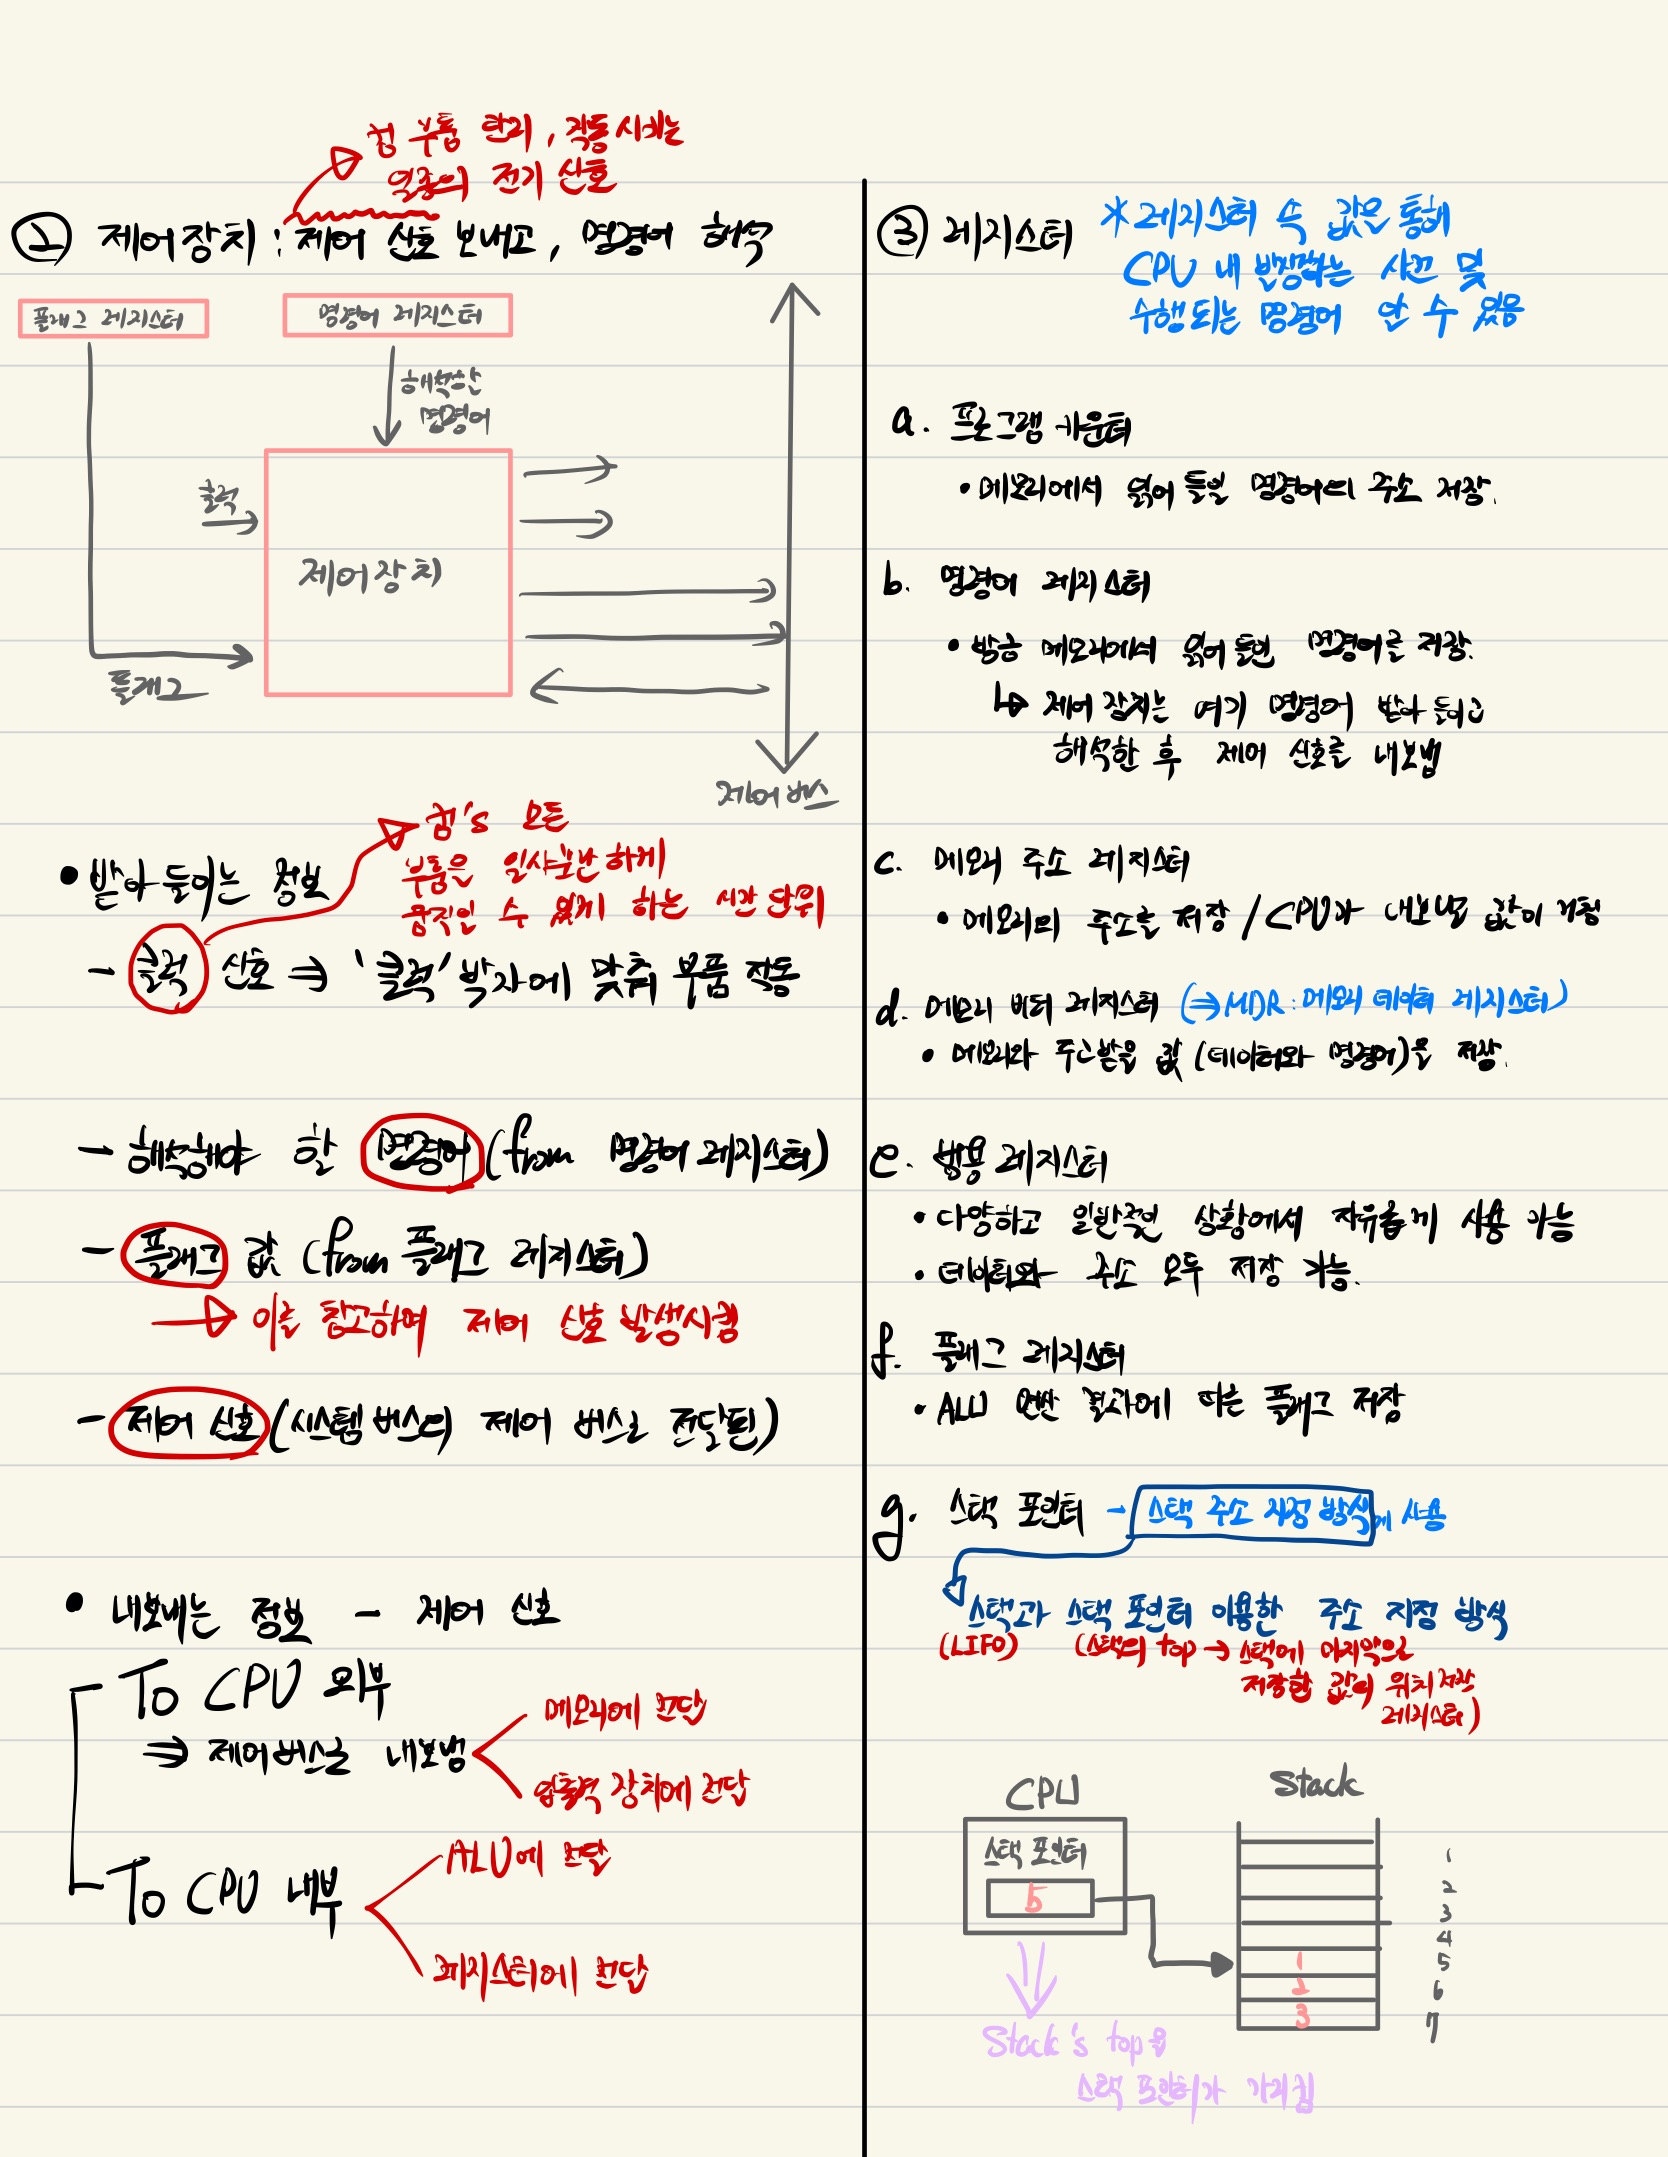 컴 부품 관리, 작동시키는
일종의 전기 신호
② 제어장치 : 제어 신호 보내고, 명령어 해석
플래그 레지스터
명령어 레지스터
해석할
명령어
클럭
제어장치
플래그
제어버스
• 받아들이는 정보
컴's 모든
부품을 일사분란하게
움직일 수 있게 하는 시간 단위
- 클럭 신호 ⇒ '클럭' 박자에 맞춰 부품 작동
- 해석해야 할 명령어 (from 명령어 레지스터)
- 플래그 값 (from 플래그 레지스터)
→ 이를 참고하여 제어 신호 발생시킴
- 제어 신호 (시스템 버스의 제어 버스로 전달된)
• 내보내는 정보 - 제어 신호
To CPU 외부
⇒ 제어버스로 내보냄
메모리에 전달
입출력 장치에 전달
To CPU 내부
ALU에 전달
레지스터에 전달
③ 레지스터
* 레지스터 속 값을 통해
CPU 내 발생하는 사건 및
수행되는 명령어 알 수 있음
a. 프로그램 카운터
• 메모리에서 읽어 들일 명령어의 주소 저장.
b. 명령어 레지스터
• 방금 메모리에서 읽어 들인 명령어를 저장.
↳ 제어 장치는 여기 명령어 받아 들이고
해석한 후 제어 신호를 내보냄
c. 메모리 주소 레지스터
• 메모리의 주소를 저장 / CPU가 내보낼 값이 거침
d. 메모리 버퍼 레지스터 (⇒ MDR : 메모리 데이터 레지스터)
• 메모리와 주고받을 값 (데이터와 명령어)을 저장.
e. 범용 레지스터
• 다양하고 일반적인 상황에서 자유롭게 사용 가능
• 데이터와 주소 모두 저장 가능.
f. 플래그 레지스터
• ALU 연산 결과에 따른 플래그 저장
g. 스택 포인터 - 스택 주소 지정 방식에 사용
스택과 스택 포인터 이용한 주소 지정 방식
(LIFO) (스택의 top → 스택에 마지막으로
저장한 값의 위치 저장
레지스터)
CPU
Stack
스택 포인터
5
1
2
3
4
5
6
7
1
2
3
Stack's top을
스택 포인터가 가리킴